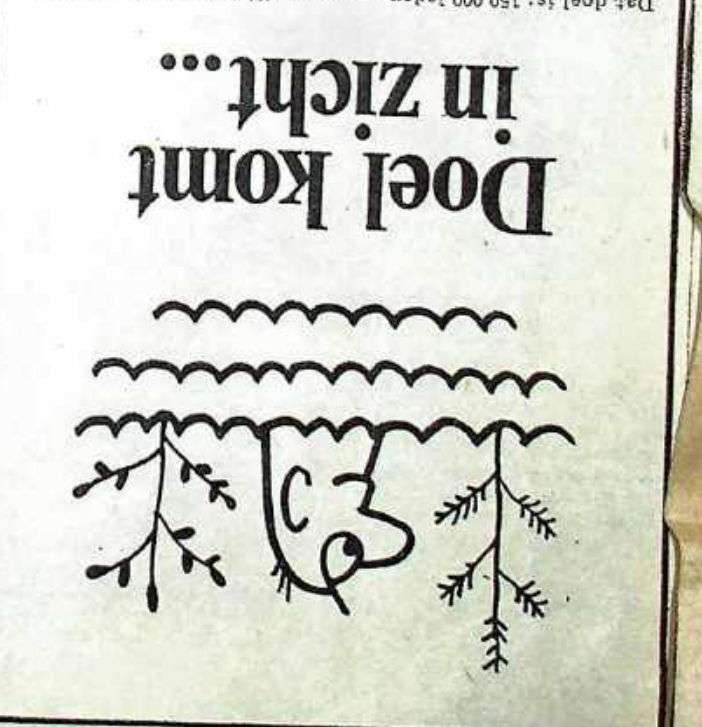 Doel komt
in zicht...
Dat doel is: 150.000 leden